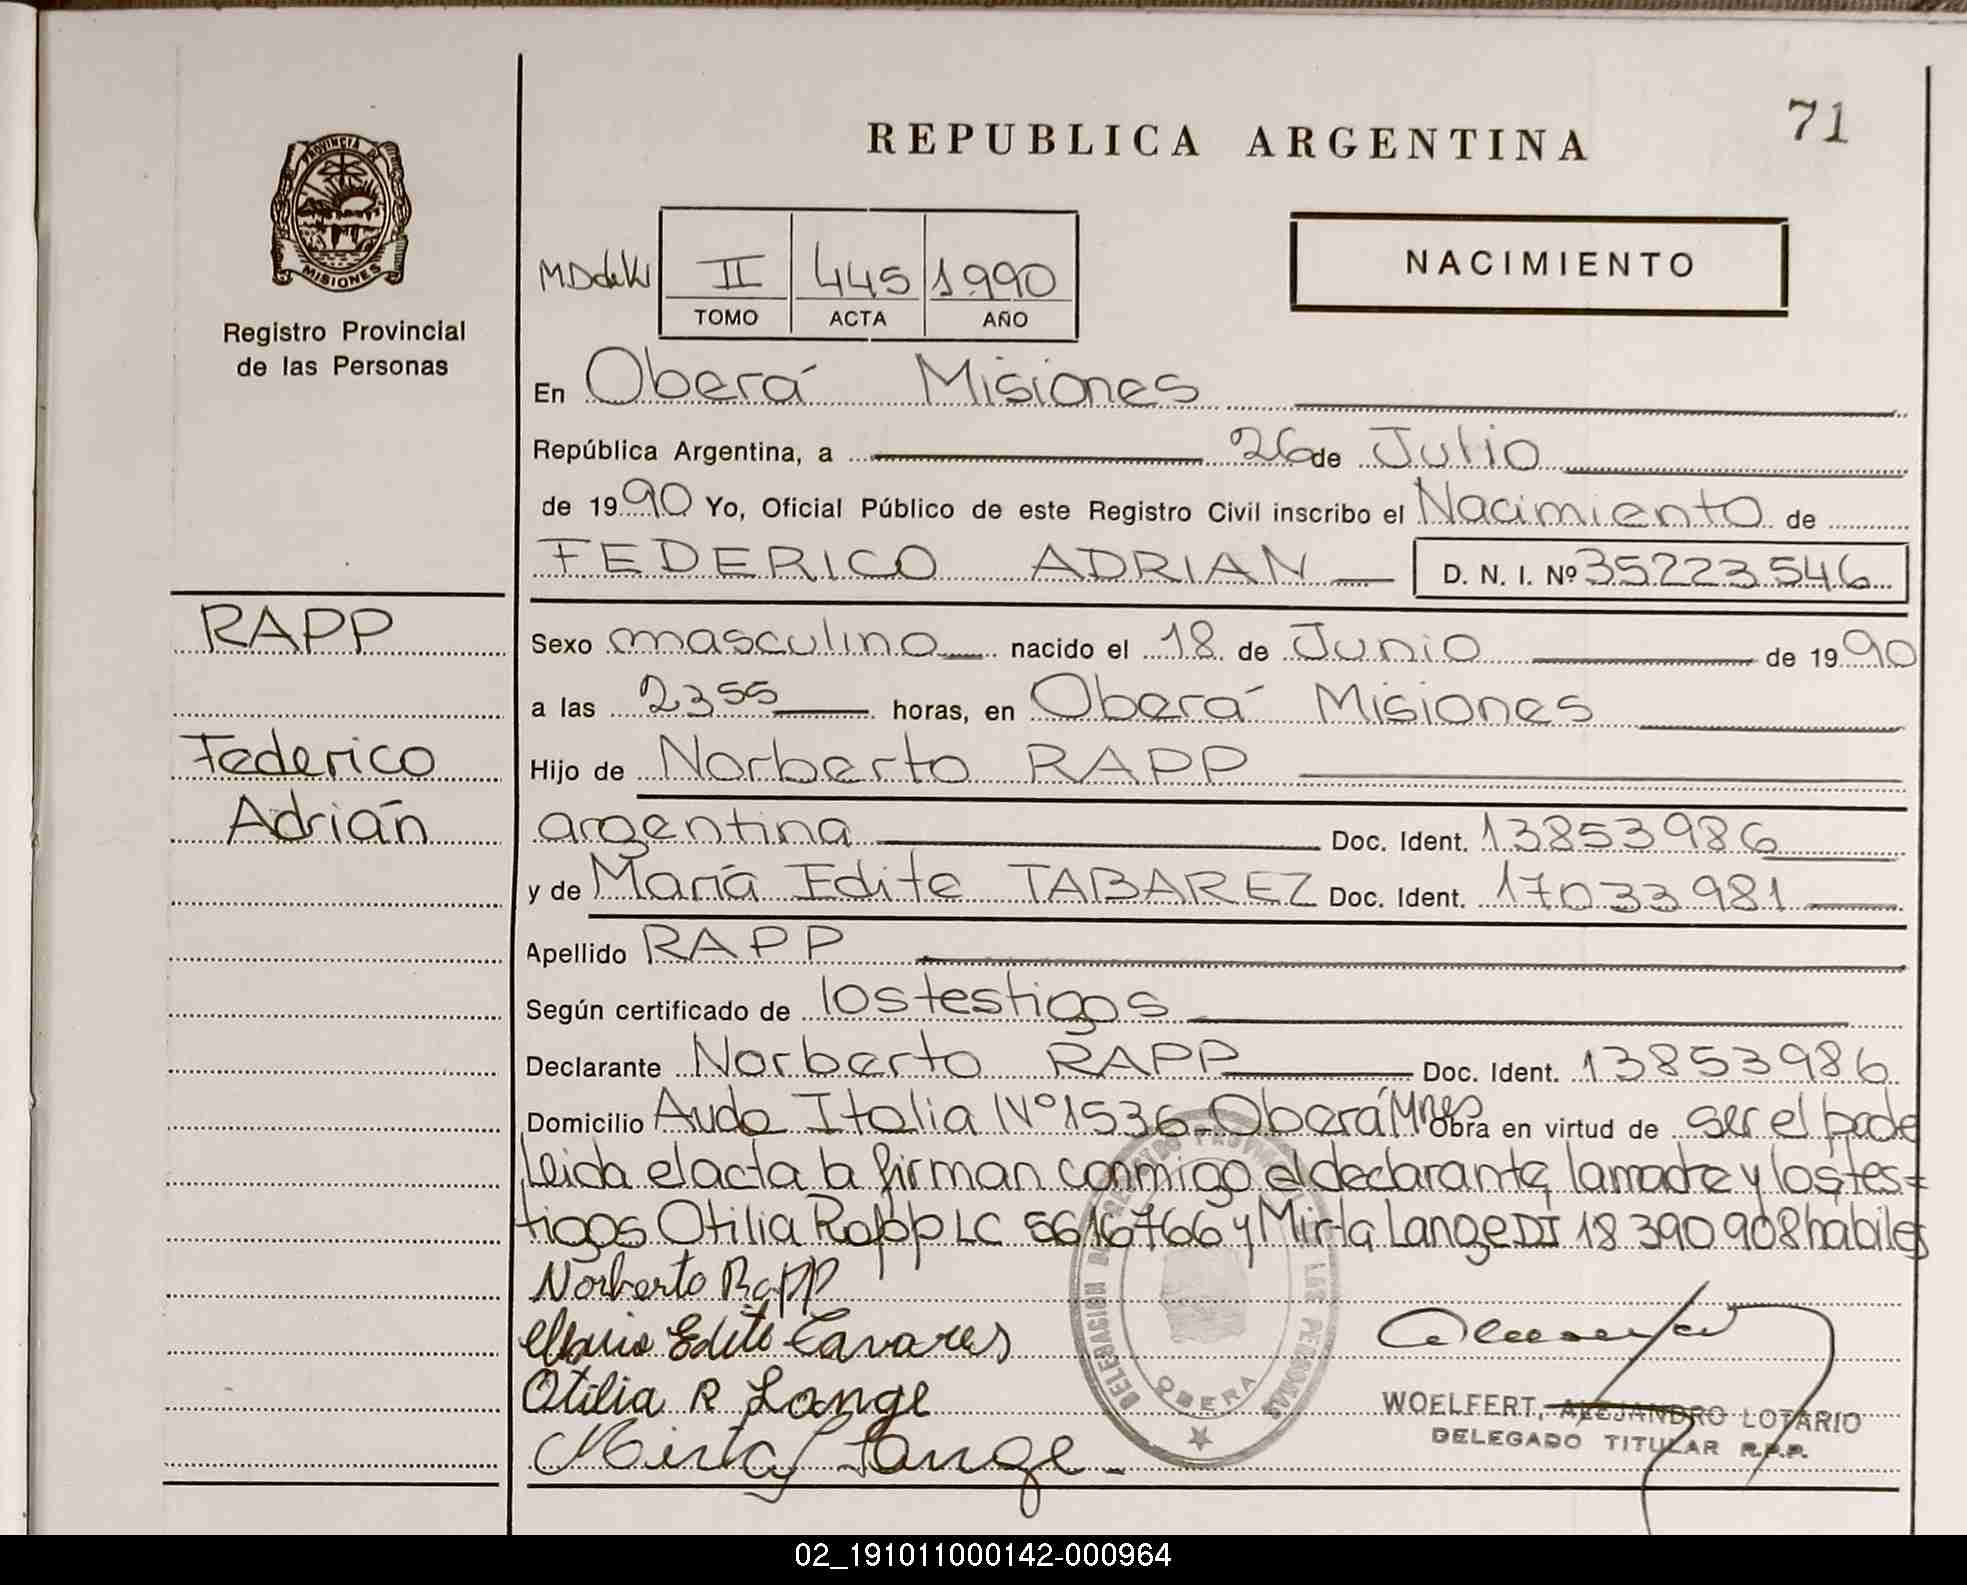 71
REPUBLICA ARGENTINA
PROVINCIA DE
MISIONES
Registro Provincial
de las Personas
NACIMIENTO
II 445 1990
TOMO ACTA AÑO
En Oberá Misiones
República Argentina, a 26 de Julio
de 1990 Yo, Oficial Público de este Registro Civil inscribo el Nacimiento de
FEDERICO ADRIAN D. N. I. Nº 35223546
RAPP
Federico
Adrián
Sexo masculino nacido el 18 de Junio de 1990
a las 23 55 horas, en Oberá Misiones
Hijo de Norberto RAPP
argentina Doc. Ident. 13853986
y de María Edite TABAREZ Doc. Ident. 17033981
Apellido RAPP
Según certificado de los testigos
Declarante Norberto RAPP Doc. Ident. 13853986
Domicilio Avda Italia Nº 1536-Oberá Mnes Obra en virtud de ser el padre
Leida el acta la firman conmigo el declarante, la madre y los tes=
tigos Otilia Rapp LC 5616766 y Mirta Lange DI 18 390 908 habiles
Norberto Rapp
Maria Edite Tavares
Otilia R Lange
Mirta Lange
DELEGACION DEL REGISTRO PROVINCIAL DE LAS PERSONAS
OBERA
WOELFERT, ALEJANDRO LOTARIO
DELEGADO TITULAR R.P.P.
02_191011000142-000964